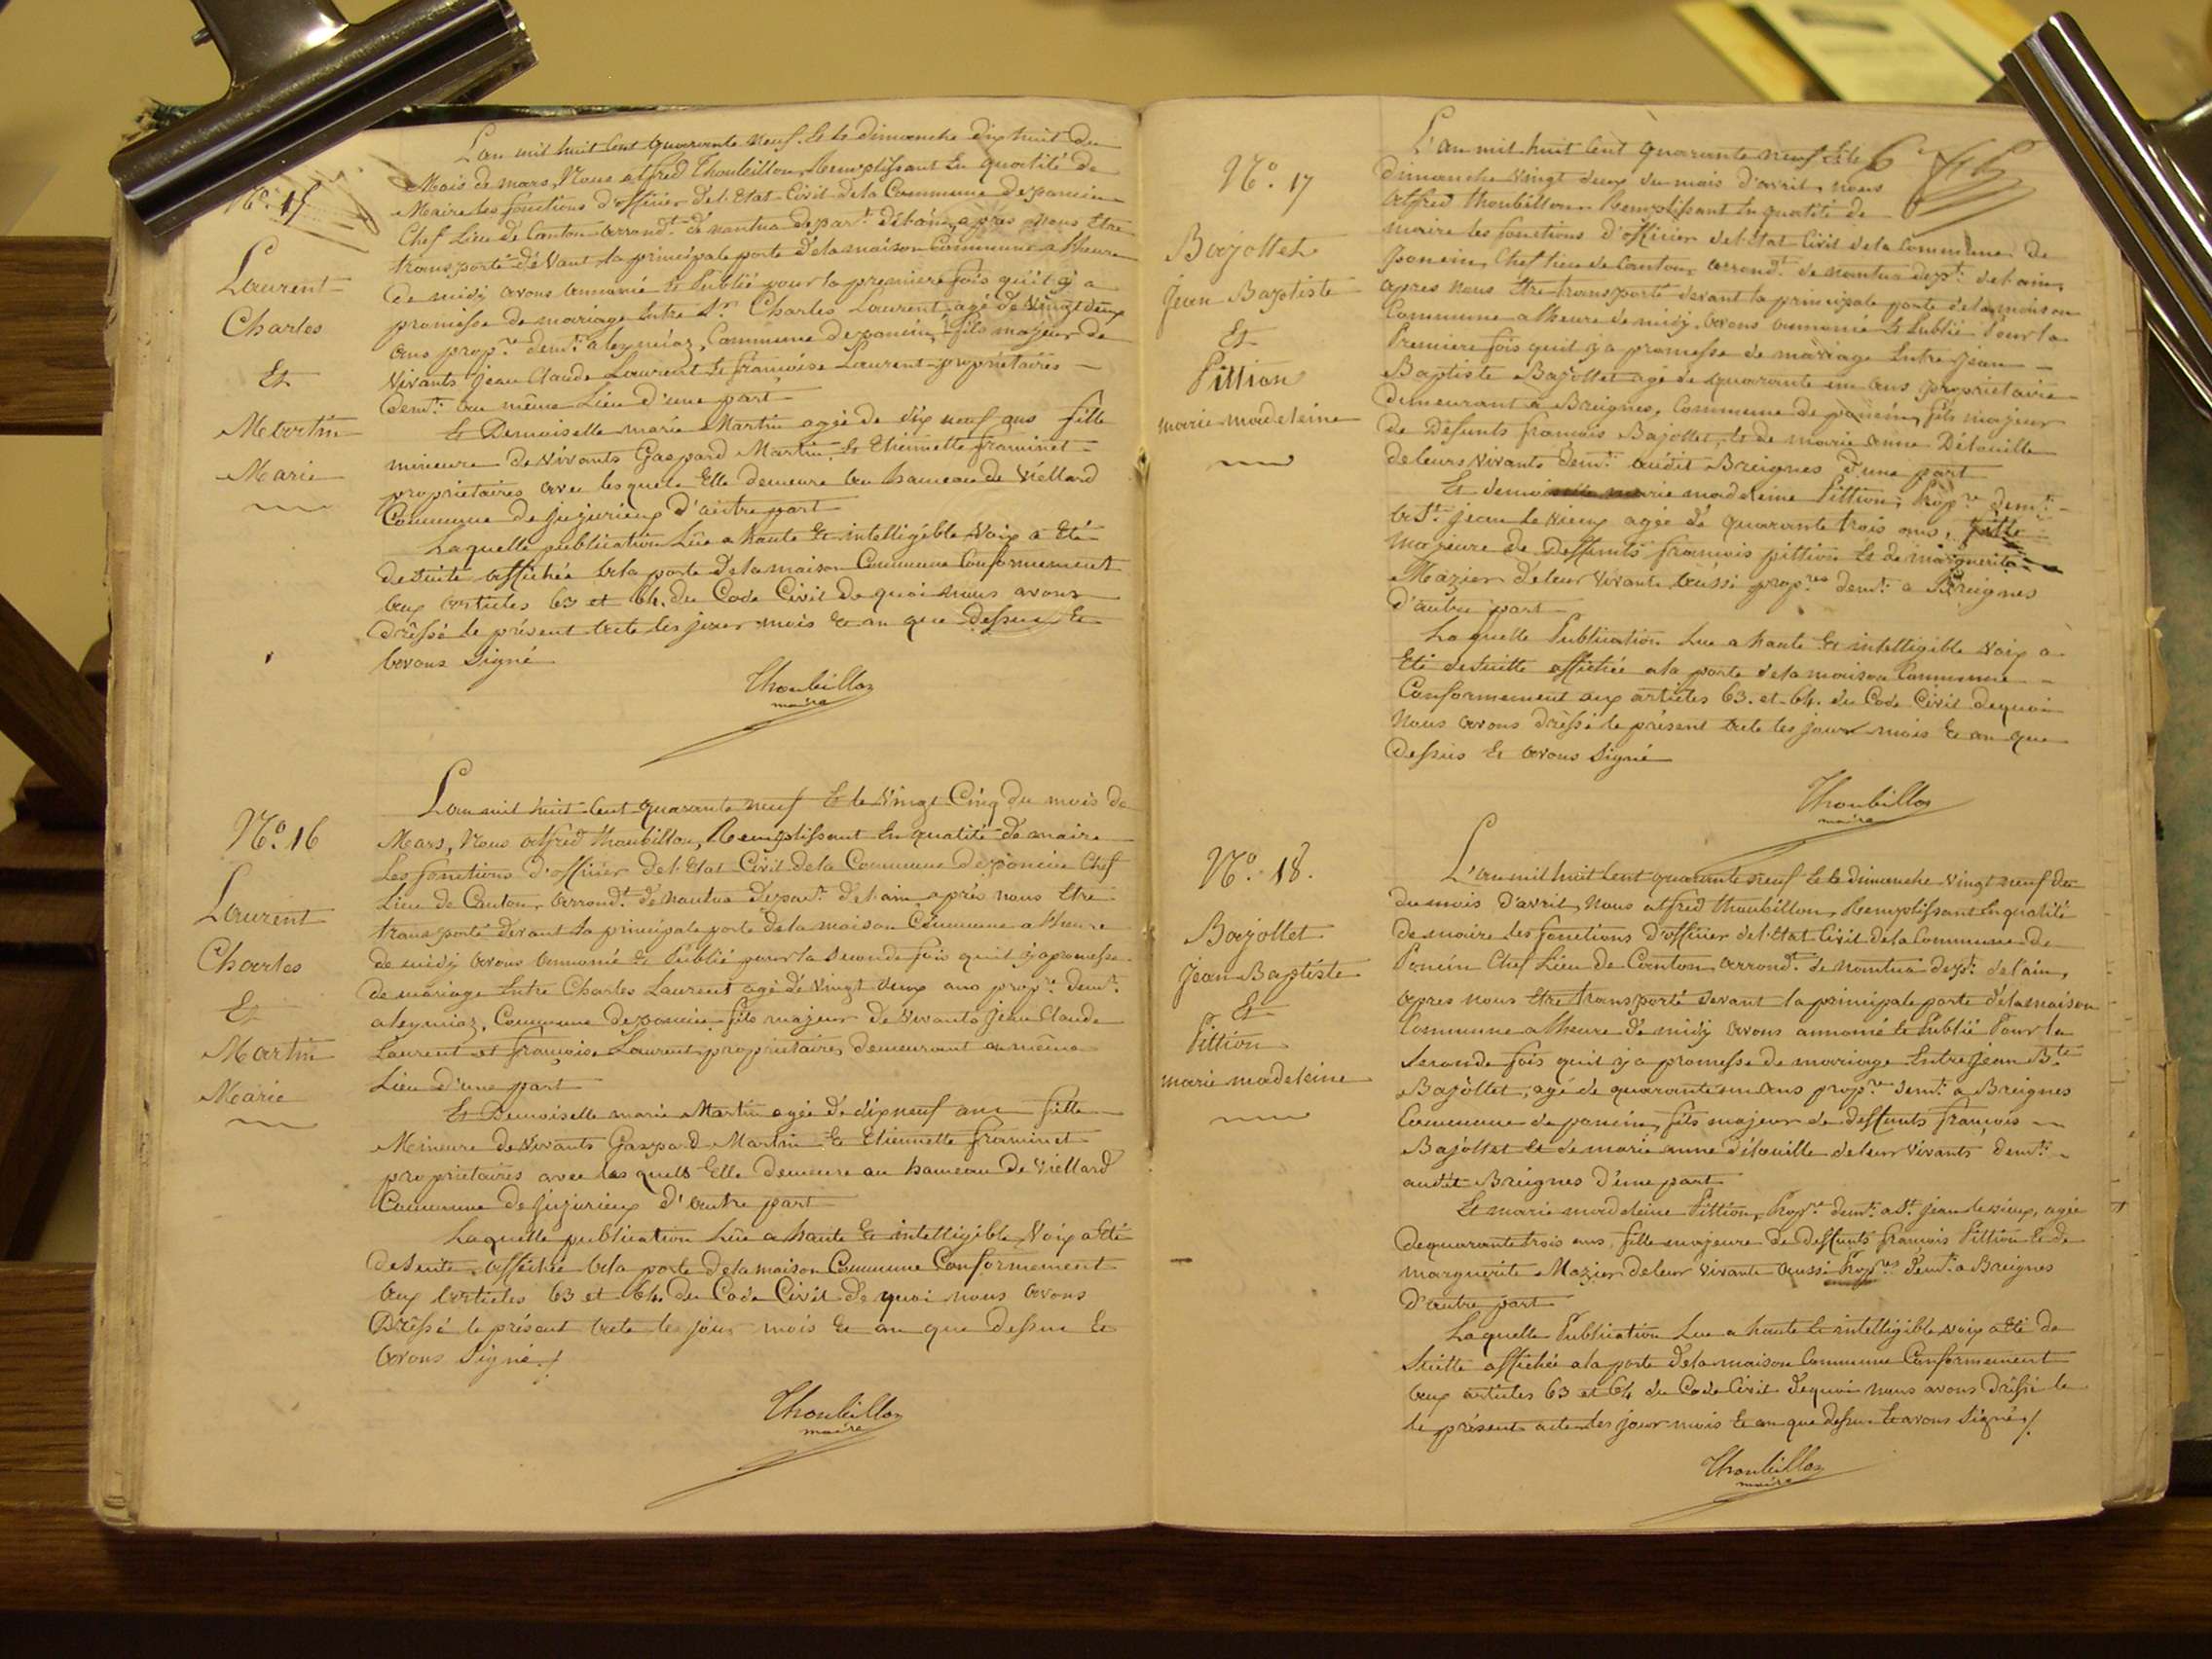 N.o 15
Laurent
Charles
Et
Martin
Marie
L'an mil huit Cent quarante neuf. Et le dimanche dix huit du
Mois de mars, Nous alfred Thoubillon, Remplissant En qualité de
Maire les fonctions d'officier de l'Etat Civil de la Commune de poncin
Chef Lieu de Canton arrond.t de nantua depar.t de l'ain, apres nous Etre
transporté devant la principale porte de la maison Commune a l'heure
de midy avons annoncé Et Publié pour la premiere fois qu'il y a
promesse de mariage Entre S.r Charles Laurent agé de vingt deux
ans prop.re dem.t a leymiaz, Commune de poncin, fils majeur de
Vivants Jean Claude Laurent Et françoise Laurent propriétaires
dem.t au même Lieu d'une part
Et Demoiselle marie Martin agée de dix neuf ans fille
mineure de Vivants Gaspard Martin Et Etiennette framinet
proprietaires avec lesquels Elle demeure au hameau de Viellard
Commune de jujurieux d'autre part
Laquelle publication Lue a haute Et intelligible Voix a Eté
de suite affichée a la porte de la maison Commune Conformement
aux articles 63 et 64. du Code Civil de quoi nous avons
dréssé le présent acte les jour mois Et an que dessus Et
avons signé
Thoubillon
maire
N.o 16
Laurent
Charles
Et
Martin
Marie
L'an mil huit Cent quarante neuf Et le Vingt Cinq du mois de
Mars, Nous alfred thoubillon, Remplissant En qualité de maire
Les fonctions d'officier de l'Etat Civil de la Commune de poncin Chef
Lieu de Canton, arrond.t de nantua depar.t de l'ain après nous Etre
transporté devant la principale porte de la maison Commune a l'heure
de midy avons annoncé Et Publié pour la seconde fois qu'il y a promesse
de mariage Entre Charles Laurent agé de vingt deux ans prop.re dem.t
a leymiaz, Commune de poncin, fils majeur de Vivants Jean Claude
Laurent et françoise Laurent propriétaires demeurant au même
Lieu d'une part
Et Demoiselle marie Martin agée de dix neuf ans fille
Mineure de Vivants Gaspard Martin Et Etiennette framinet
propriétaires avec lesquels Elle demeure au hameau de Viellard
Commune de jujurieux d'autre part
Laquelle publication Lue a haute Et intelligible Voix a Eté
de suite affichée a la porte de la maison Commune Conformement
aux articles 63 et 64. du Code Civil de quoi nous avons
Dréssé le présent acte les jour mois Et an que dessus Et
avons signé ./.
Thoubillon
maire
N.o 17
Bajollet
Jean Baptiste
Et
Pittion
marie madeleine
L'an mil huit Cent quarante neuf Et le 6
dimanche vingt deux du mois d'avril, nous
alfred thoubillon Remplissant En qualité de
maire les fonctions d'officier de l'Etat Civil de la Commune de
poncin, Chef lieu de Canton, arrond.t de nantua dep.t de l'ain,
apres nous Etre transporté devant la principale porte de la maison
Commune a l'heure de midy, avons annoncé Et Publié Pour la
Premiere fois qu'il y a promesse de mariage Entre jean
Baptiste Bajollet agé de quarante un ans propriétaire
demeurant a Breignes, Commune de poncin, fils majeur
de Défunts françois Bajollet, Et de marie anne Détouille
de leurs vivants dem.t audit Breignes d'une part
Et marie madeleine Pittion, Prop.re dem.t
a S.t jean le vieux agée de quarante trois ans, fille
majeure de Deffunts françois pittion Et de marguerite
Mazier de leur vivants aussi prop.res dem.t a Breignes
d'autre part
Laquelle Publication Lue a haute Et intelligible voix a
Eté de suitte affichée a la porte de la maison Commune
Conformement aux articles 63. et 64. du Code Civil de quoi
Nous avons dréssé le présent acte les jour mois Et an que
dessus Et avons signé
Thoubillon
maire
N.o 18.
Bajollet
jean Baptiste
Et
Pittion
marie madeleine
L'an mil huit Cent quarante neuf Et le dimanche vingt neuf du
du mois d'avril, Nous alfred thoubillon, Remplissant En qualité
de maire les fonctions d'officier de l'Etat Civil de la Commune de
Poncin Chef Lieu de Canton arrond.t de nantua dep.t de l'ain,
apres nous Etre transporté devant la principale porte de la maison
Commune a l'heure de midy avons annoncé Et Publié Pour la
seconde fois qu'il y a promesse de mariage Entre jean B.te
Bajollet, agé de quarante un ans prop.re dem.t a Breignes
Commune de poncin, fils majeur de deffunts françois
Bajollet Et de marie anne détouille de leur vivants dem.t
audit Breignes d'une part
Et marie madeleine Pittion, Prop.re dem.t a S.t jean le vieux, agée
de quarante trois ans, fille majeure de deffunts françois Pittion Et de
marguerite Mazier de leur vivants aussi Prop.res dem.t a Breignes
d'autre part
Laquelle Publication Lue a haute Et intelligible voix a Eté de
suitte affichée a la porte de la maison Commune Conformement
aux articles 63 et 64 du Code Civil de quoi nous avons dréssé le
le présent acte les jour mois Et an que dessus Et avons signé ./.
Thoubillon
maire